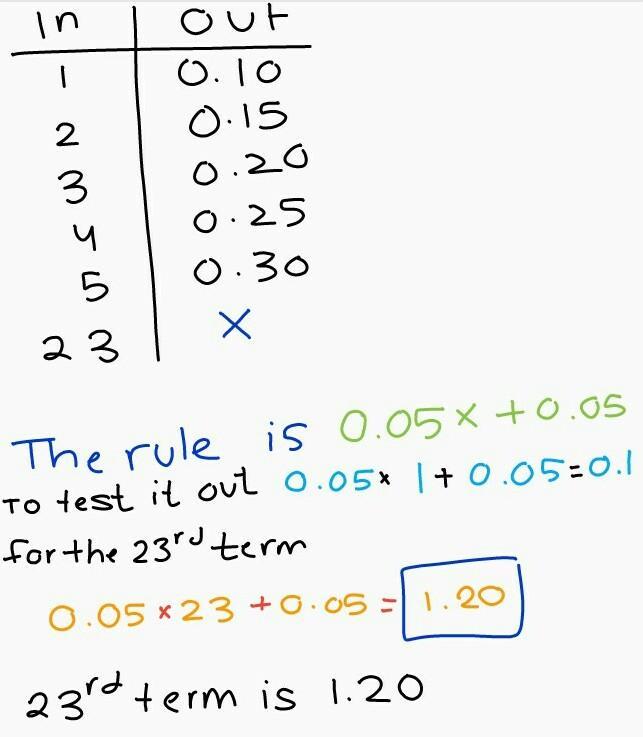 In out
1 0.10
2 0.15
3 0.20
4 0.25
5 0.30
23 x
The rule is 0.05x + 0.05
To test it out 0.05 × 1 + 0.05 = 0.1
for the 23rd term
0.05 × 23 + 0.05 = 1.20
23rd term is 1.20